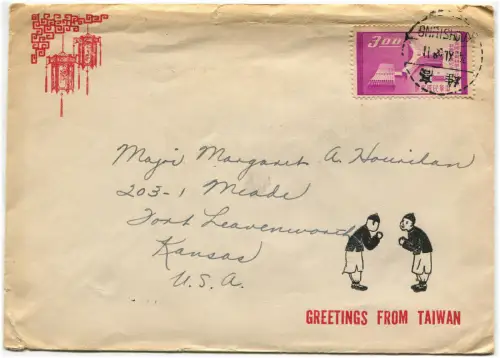 3 00
Major Margaret A. Hourihan
203-1 Meade
Fort Leavenworth
Kansas
U.S.A.
GREETINGS FROM TAIWAN